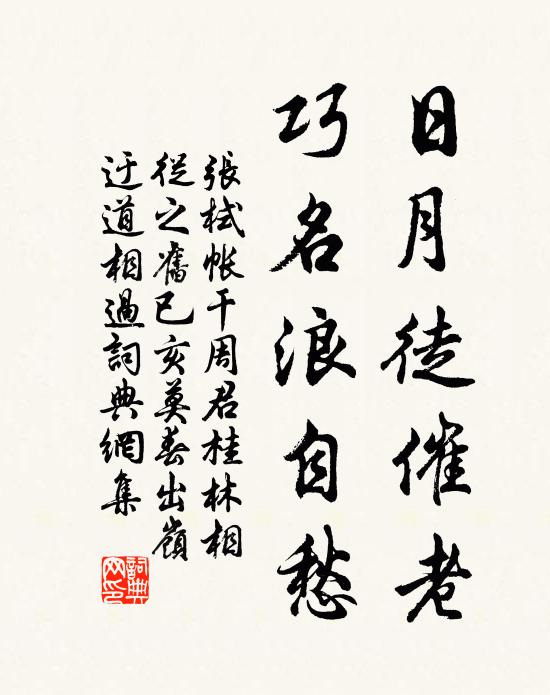 日月徒催老
巧名浪自愁
張栻帐干周君桂林相
從之舊已亥莫春出嶺
迂道相過詞典網集
詞典
网印